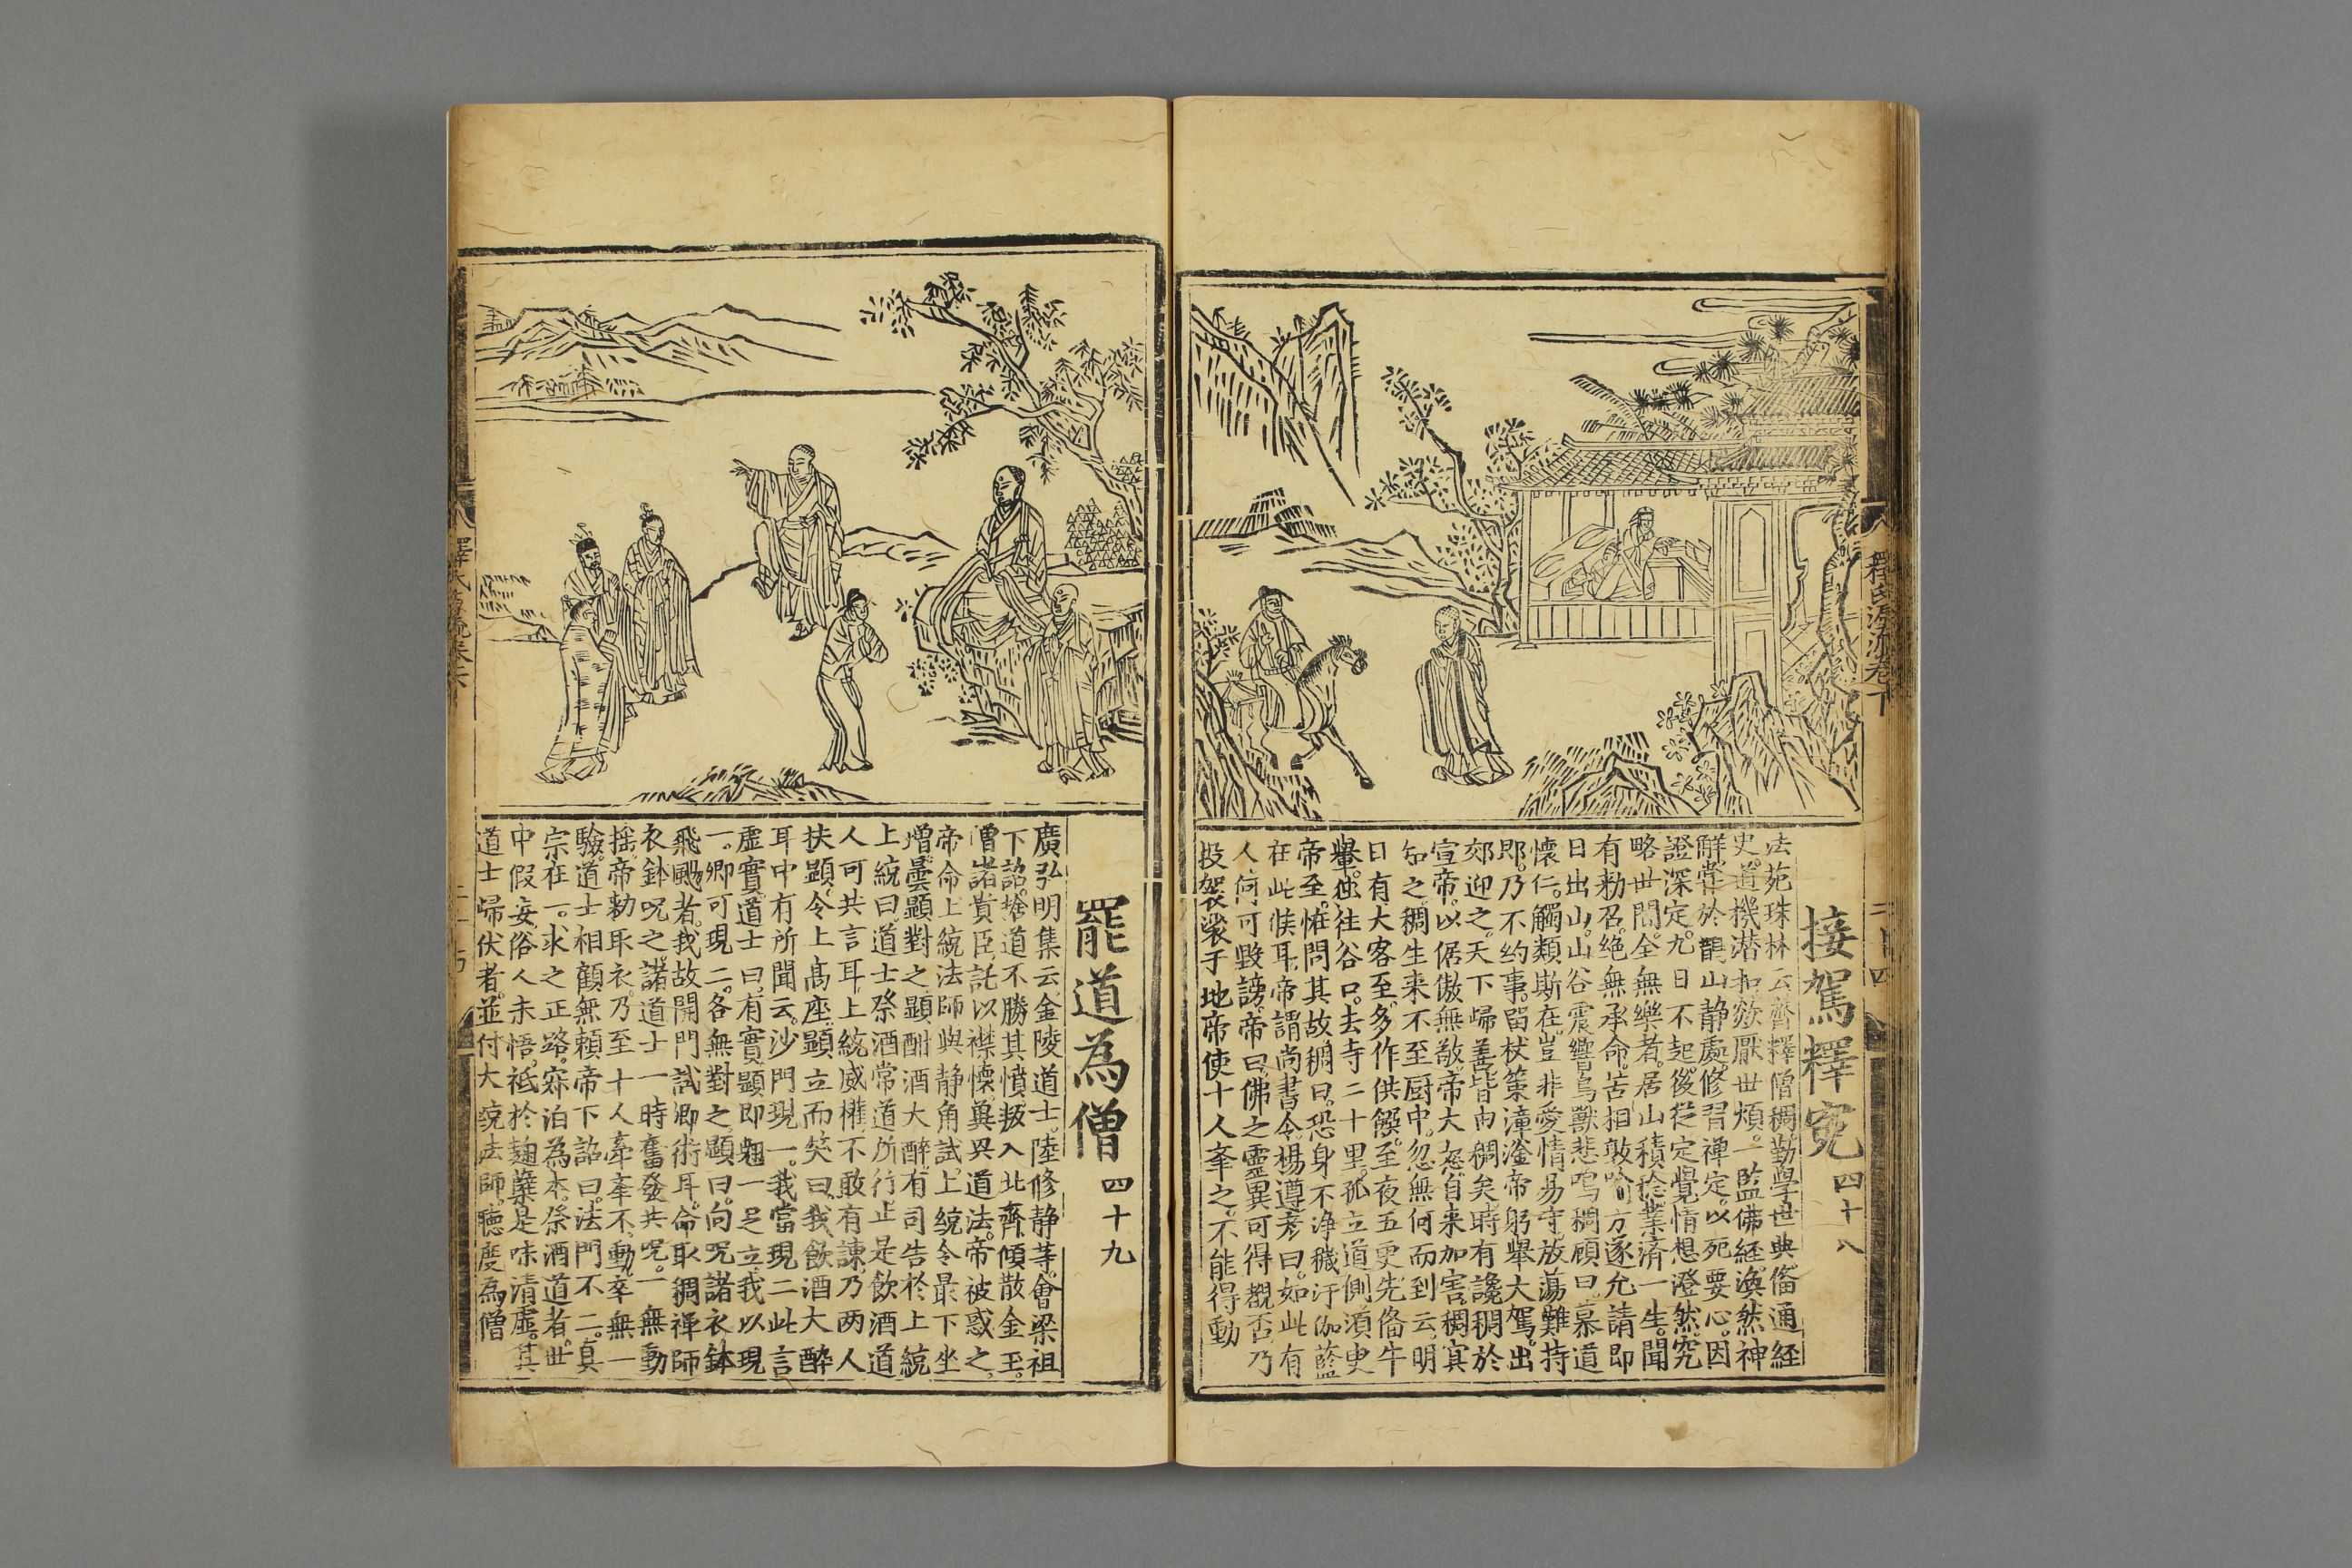 釋氏源流卷下
接駕釋寃 四十八
法苑珠林云齊釋僧稠勤學世典偹通經
史道機潜扣欻厭世煩一監佛經渙然神
解甞於鵲山静處修習禪定以死要心因
證深定九日不起後從定覺情想澄然究
略世間全無樂者居山積稔業濟一生聞
有勑召絶無承命苦相敦喻方遂允請即
日出山山谷震響鳥獸悲鳴稠顧曰慕道
懷仁觸類斯在豈非愛情易守放蕩難持
郎乃不约事留杖策漳滏帝躬舉大駕出
郊迎之天下歸善皆由稠矣時有讒稠於
宣帝以倨傲無敬帝大怒自来加害稠㝠
知之稠生来不至厨中忽無何而到云明
日有大客至多作供饌至夜五更先偹牛
轝獨往谷口去寺二十里孤立道側湏史
帝至恠問其故稠曰恐身不浄穢汙伽藍
在此候耳帝謂尚書令楊遵彦曰如此有
人何可毀謗帝曰佛之靈異可得觀否乃
投袈裟于地帝使十人牽之不能得動
罷道為僧 四十九
廣弘明集云金陵道士陸修静等會梁祖
下詔捨道不勝其憤叛入北齊傾散金玉
僧諸貴臣託以襟懷冀興道法帝被惑之
帝命上統法師與静角試上統令最下坐
僧曇顯對之顯酣酒大醉有司告於上統
上統曰道士祭酒常道所行止是飲酒道
人可共言耳上統威權不敢有諫乃两人
扶顯令上髙座顯立而笑曰我飲酒大醉
耳中有所聞云沙門現一我當現二此言
虛實道士曰有實顯即翹一足立我以現
一卿可現二各無對之顯曰向咒諸衣鉢
飛颺者我故開門試卿術耳命取稠禪師
衣鉢咒之諸道士一時奮發共咒一無動
揺帝勑取衣乃至十人牽牽不動卒無一
驗道士相顧無頼帝下詔曰法門不二真
宗在一求之正路寂泊為本祭酒道者世
中假妄俗人未悟祗於麹糵是味清虛其
道士歸伏者並付大統法師聽度為僧